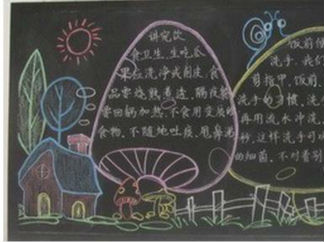 讲究饮
食卫生,生吃瓜
果应洗净或削皮,食
品要烧熟煮透,隔夜餐
需回锅加热,不食用变质的
食物,不随地吐痰,甩鼻涕
饭前便
洗手,我们
剪指甲,饭前、
洗手的习惯,洗
再用流水冲洗
秒,这样洗手可
的细菌,不对着别